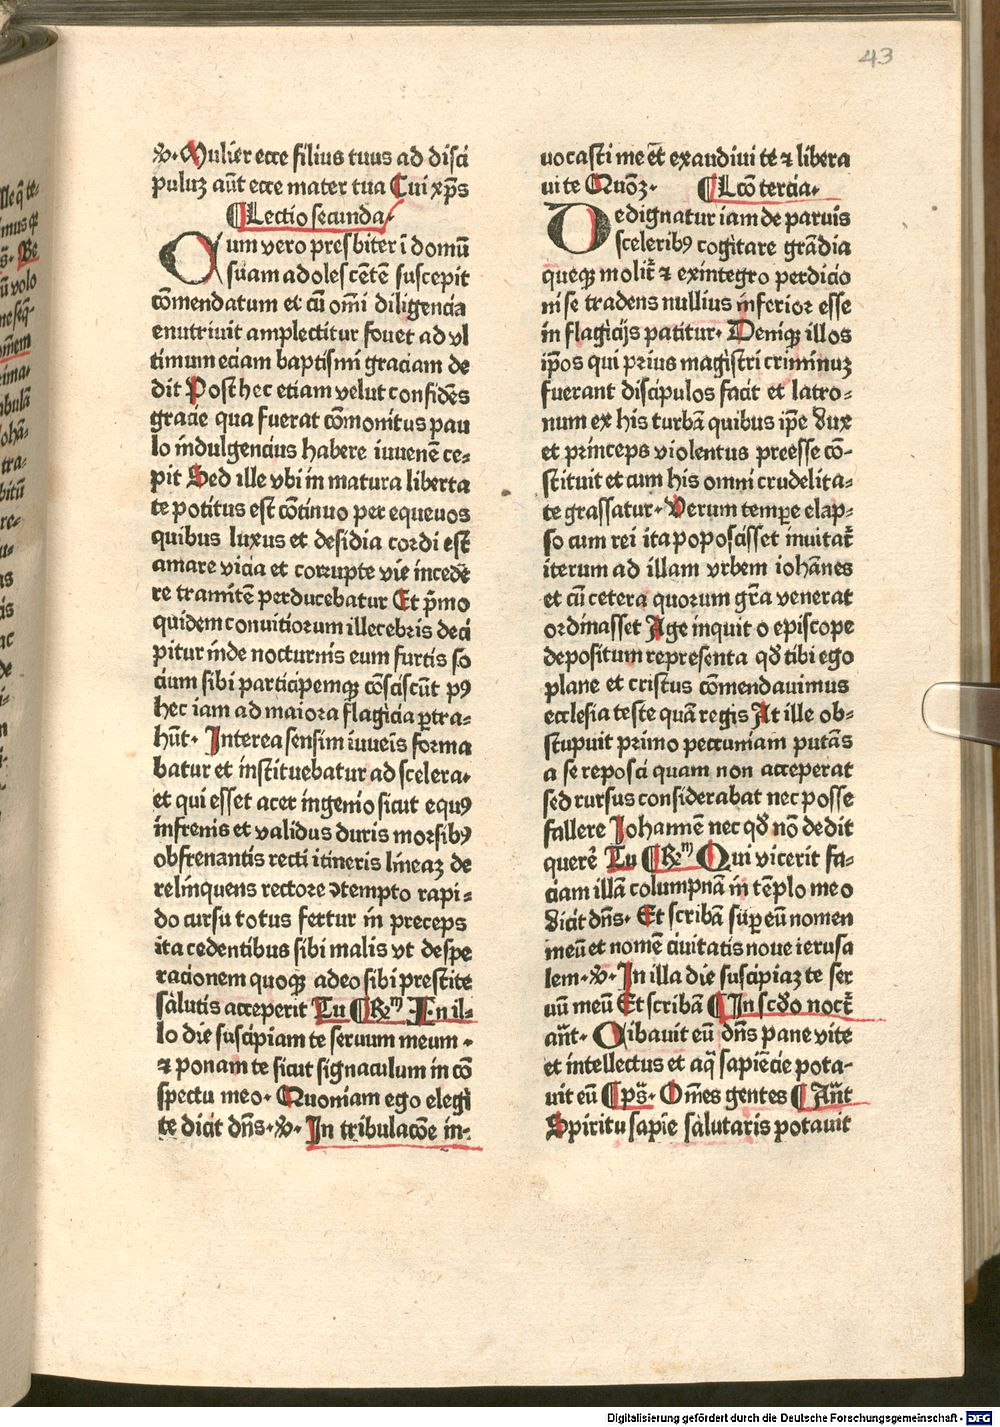 43
℣. Mulier ecce filius tuus ad disci
puluꝫ aūt ecce mater tua Cui xp̄s
¶Lectio secunda.
Cum vero presbiter ī domū
suam adolescētē suscepit
cōmendatum et cū om̄i diligencia
enutriuit amplectitur fouet ad vl
timum eciam baptismi graciam de
dit Post hec etiam velut confidēs
gracie qua fuerat cōmonitus pau
lo indulgencius habere iuuenē ce⸗
pit Sed ille vbi in matura liberta
te potitus est cōtinuo per equeuos
quibus luxus et desidia cordi est
amare vicia et corrupte vie incedē
re tramitē perducebatur Et p̄mo
quidem conuitiorum illecebris deci
pitur inde nocturnis eum furtis so
cium sibi participemqꝫ cōsciscūt pꝰ
hec iam ad maiora flagicia ꝑtra⸗
hūt. Interea sensim iuueīs forma
batur et instituebatur ad scelera.
et qui esset acer ingenio sicut equꝰ
infrenis et validus duris morsibꝰ
obfrenantis recti itineris lineaꝫ de
relinquens rectore ↄtempto rapi⸗
do cursu totus fertur in preceps
ita cedentibus sibi malis vt despe
racionem quoqꝫ adeo sibi prestite
salutis acceperit Tu ¶R̄m̄ In il⸗
lo die suscipiam te seruum meum.
⁊ ponam te sicut signaculum in cō
spectu meo. Quoniam ego elegi
te dicit dn̄s. ℣. In tribulacōe in⸗
uocasti me et̄ exaudiui te ⁊ libera
ui te Quōꝫ. ¶Lcō tercia.
Dedignatur iam de paruis
sceleribꝰ cogitare grādia
queqꝫ molit᷑ ⁊ exintegro perdicio
ni se tradens nullius inferior esse
in flagicijs patitur. Deniqꝫ illos
ip̄os qui prius magistri criminuꝫ
fuerant discipulos facit et latro⸗
num ex his turbā quibus ip̄e dux
et princeps violentus preesse cō⸗
stituit et cum his omni crudelita⸗
te grassatur. Verum tempe elap⸗
so cum rei ita poposcisset inuitat᷑
iterum ad illam vrbem iohānes
et cū cetera quorum gr̄a venerat
ordinasset Age inquit o episcope
depositum representa qd̄ tibi ego
plane et cristus cōmendauimus
ecclesia teste quā regis At ille ob⸗
stupuit primo peccuniam putās
a se reposci quam non acceperat
sed rursus considerabat nec posse
fallere Johannē nec qd̄ nō dedit
querē Tu ¶R̄m̄ Qui vicerit fa⸗
ciam illā columpnā in tēplo meo
dicit dn̄s. Et scribā sup̄ eū nomen
meū et nomē ciuitatis noue ierusa
lem. ℣. In illa die suscipiaꝫ te ser
uū meū Et scribā ¶In scd̄o noct᷑
ān̄t. Cibauit eū dn̄s pane vite
et intellectus et aq̄ sapiēcie pota⸗
uit eū ¶ps̄. Om̄es gentes ¶An̄t
Spiritu sapīe salutaris potauit
Digitalisierung gefördert durch die Deutsche Forschungsgemeinschaft - DFG